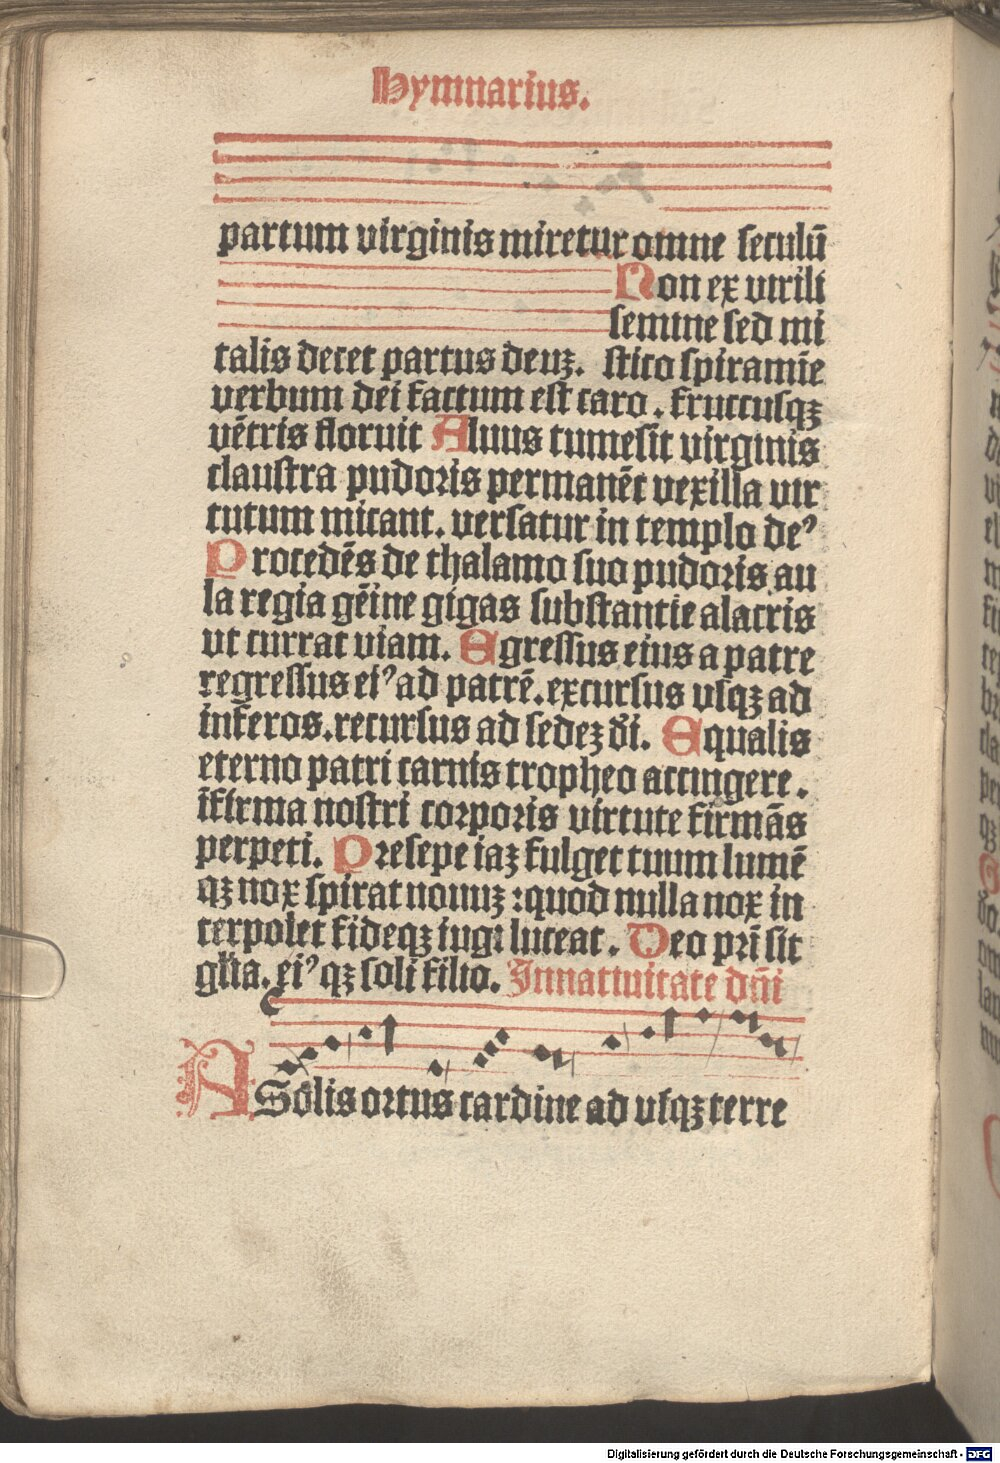 Hymnarius.
partum virginis miretur omne seculū
Non ex virili
semine sed mi
talis decet partus deuꝫ. stico spiramīe
verbum dei factum est caro. fructusqꝫ
vētris floruit Aluus tumesit virginis
claustra pudoris permanēt vexilla vir
tutum micant. versatur in templo deꝰ
Procedēs de thalamo suo pudoris au
la regia gēine gigas substantie alacris
vt currat viam. Egressus eius a patre
regressus eiꝰ ad patrē. excursus vsqꝫ ad
inferos. recursus ad sedeꝫ d̄i. Equalis
eterno patri carnis tropheo accingere.
īfirma nostri corporis virtute firmās
perpeti. Presepe iaꝫ fulget tuum lumē
qꝫ nox spirat nouuꝫ: quod nulla nox in
terpolet fideqꝫ iugi luceat. Deo pr̄i sit
gl̄ia. eiꝰqꝫ soli filio. In natiuitate dn̄i
A Solis ortus cardine ad vsqꝫ terre
Digitalisierung gefördert durch die Deutsche Forschungsgemeinschaft - DFG